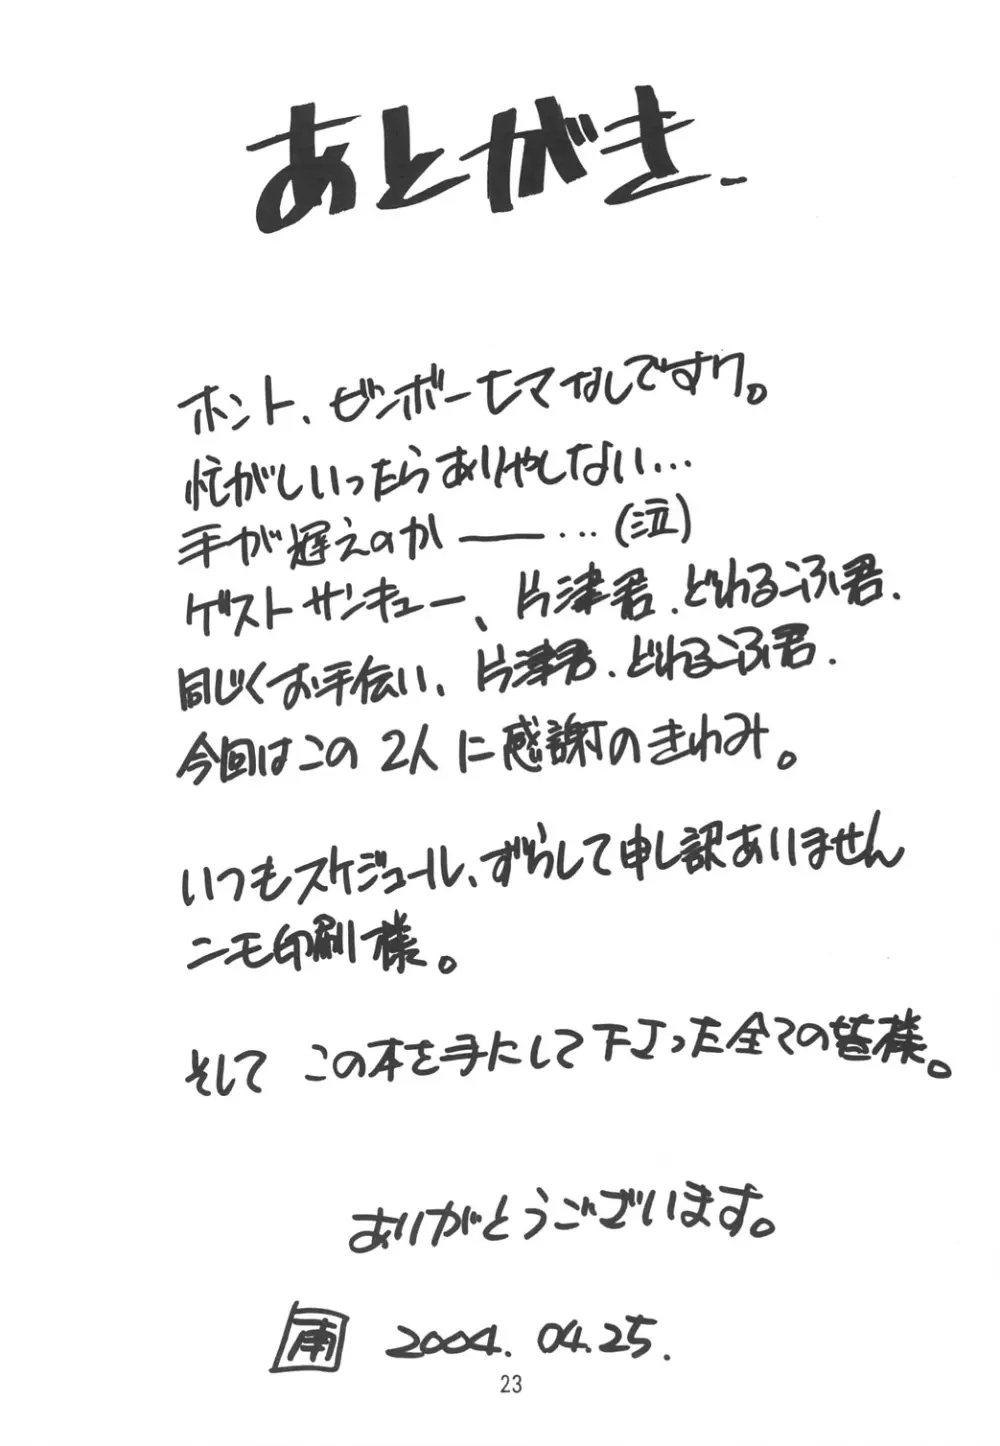 あとがき.
ホント、ビンボーヒマなしですワ。
忙がしいったらありゃしない…
手が遅えのかー…(泣)
ゲストサンキュー、片津君.どわるこふ君.
同じくお手伝い、片津君.どわるこふ君.
今回はこの2人に感謝のきわみ。
いつもスケジュール、ずらして申し訳ありません
ニモ印刷様。
そして この本を手にして下さった全ての皆様。
ありがとうございます。
南 2004.04.25.
23